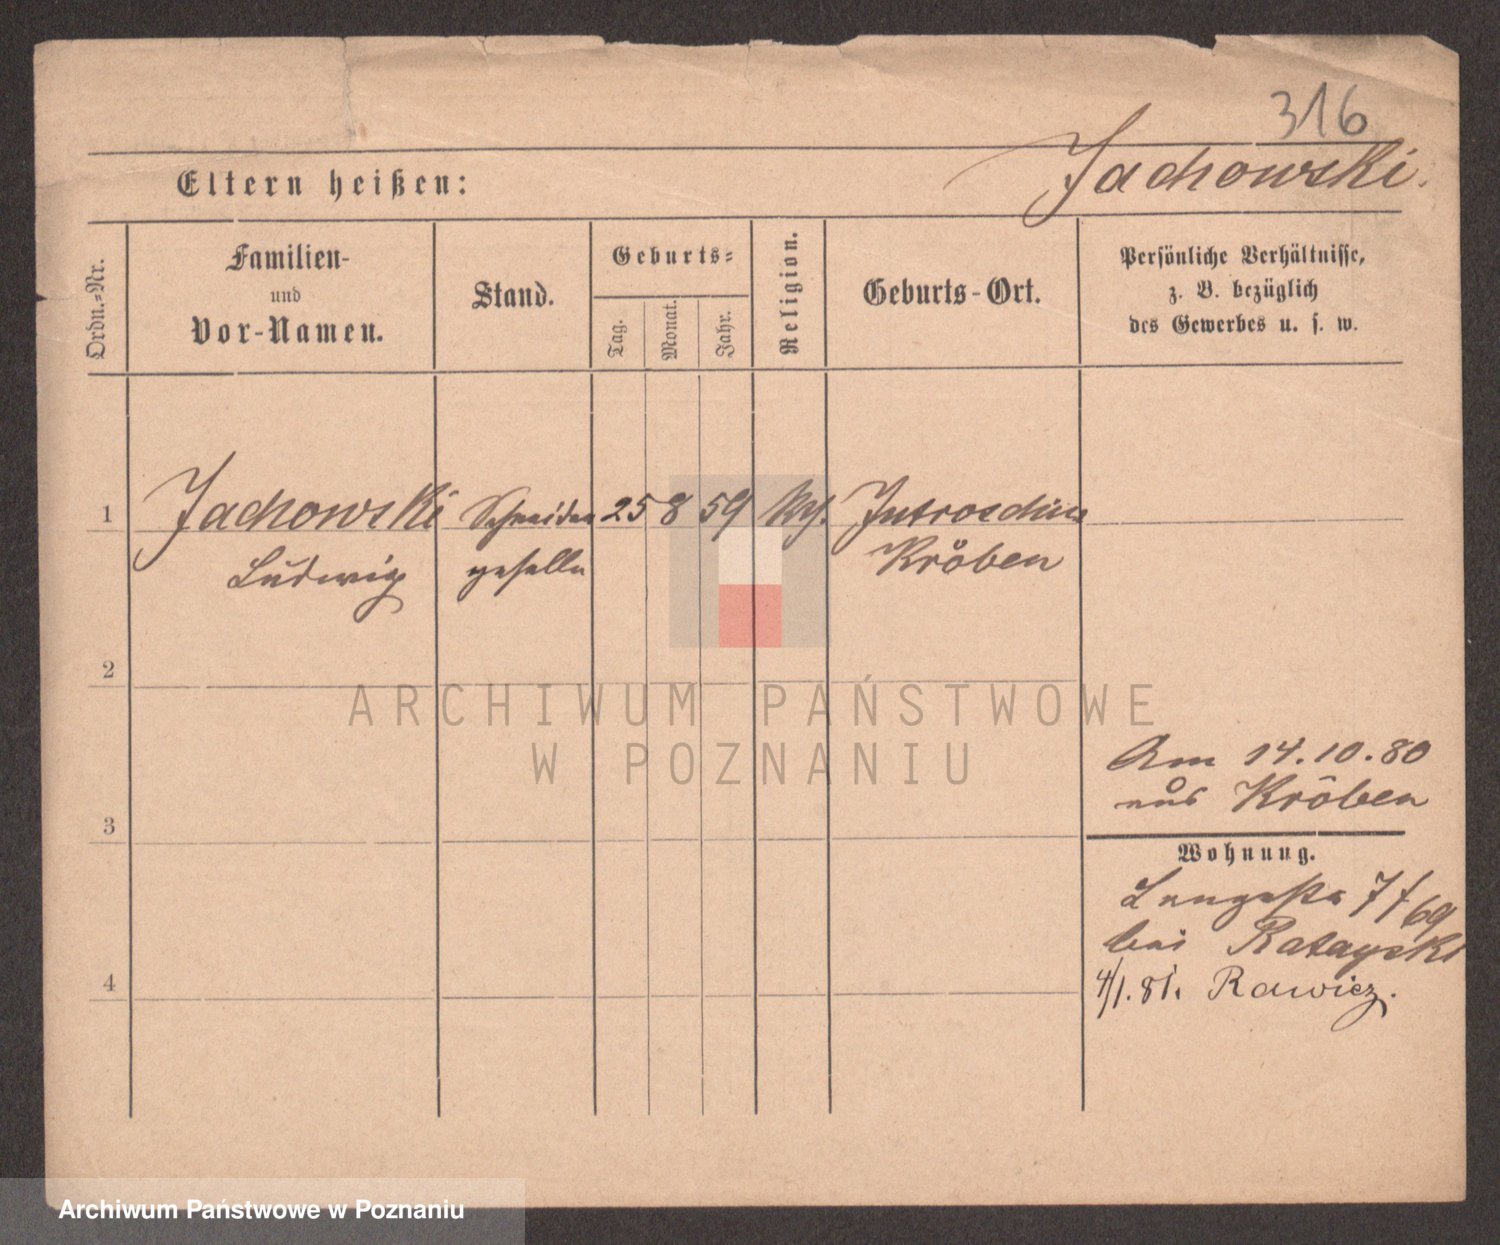 316
Jachowski.
Eltern heißen:
Ordn.=Nr.
Familien-
und
Vor-Namen.
Stand.
Geburts=
Tag.
Monat.
Jahr.
Religion.
Geburts-Ort.
Persönliche Verhältnisse,
z. B. bezüglich
des Gewerbes u. s. w.
1 Jachowski Schneider 25 8 59 Jutroschin
Ludwig geselle Kröben
2
3
4
Am 14.10.80
aus Kröben
Wohnung.
Langestr 7/69
bei Ratayski
4/1.81. Rawicz.
ARCHIWUM PAŃSTWOWE
W POZNANIU
Archiwum Państwowe w Poznaniu